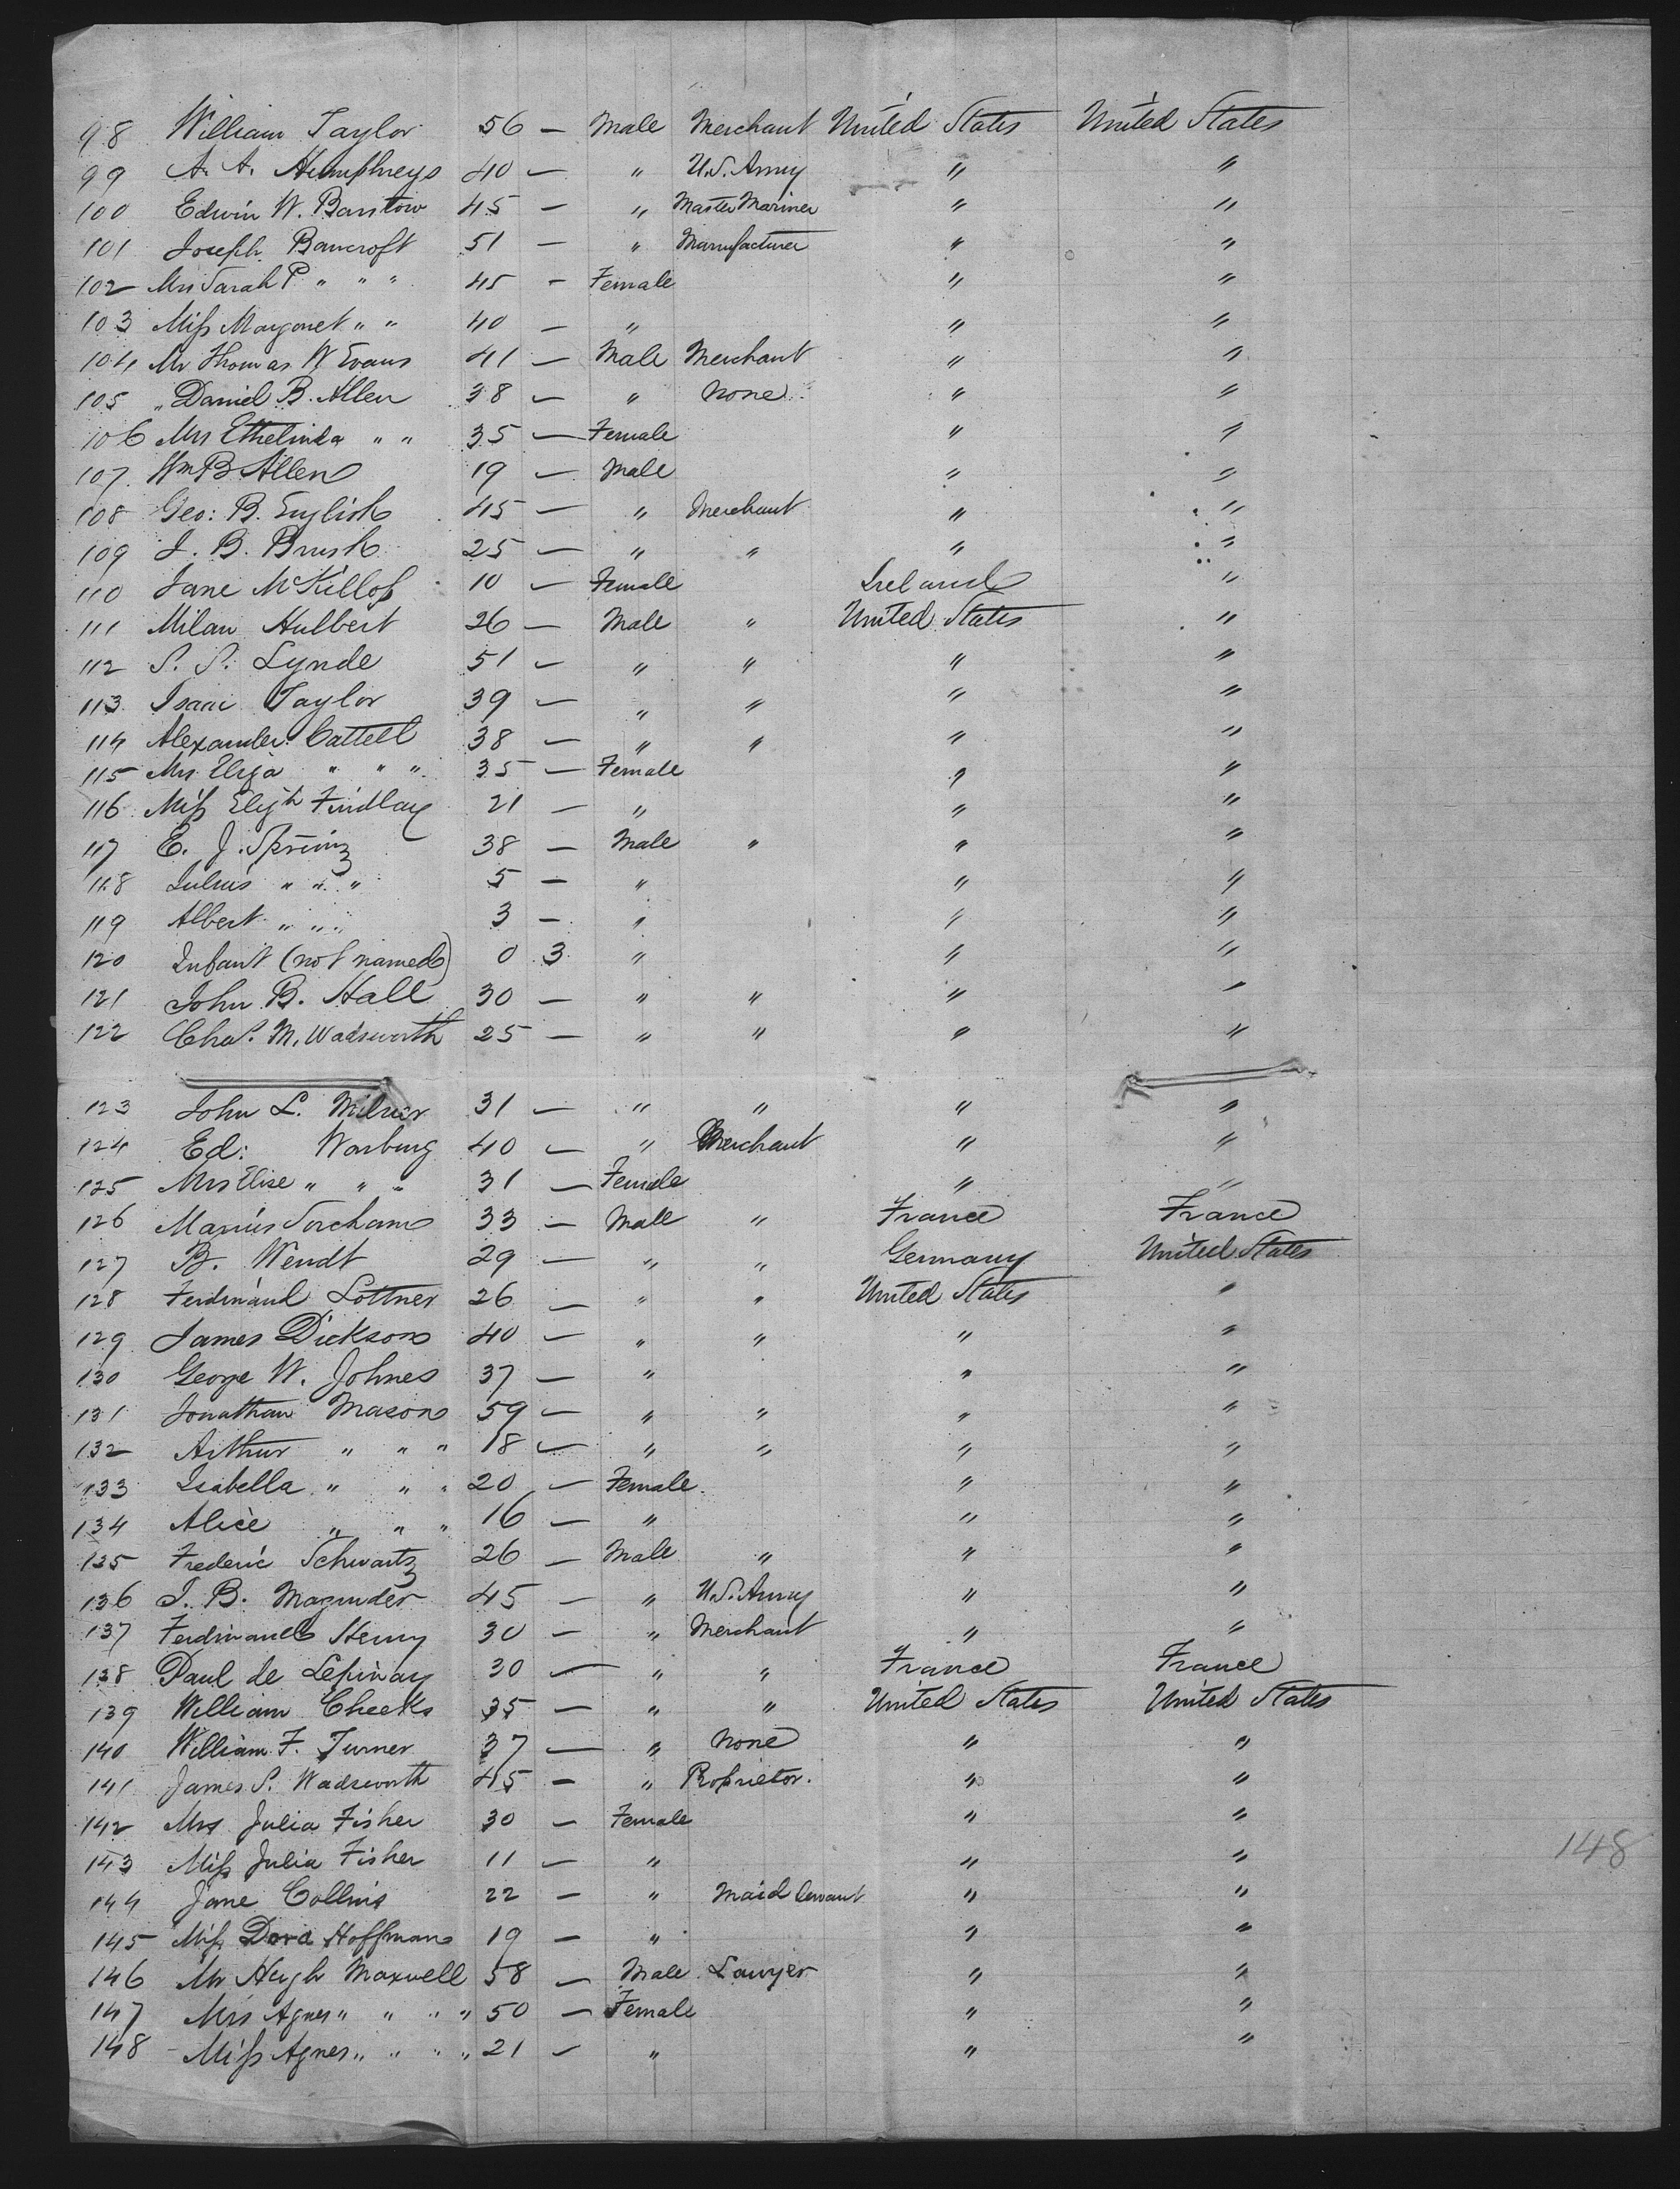 98 William Taylor 56 — Male Merchant United States United States
99 A. A. Humphreys 40 — " U.S. Army " "
100 Edwin W. Barstow 45 — " Master Mariner " "
101 Joseph Bancroft 51 — " Manufacturer " "
102 Mrs Sarah P " " " 45 — Female " "
103 Miss Margaret " " 40 — " " "
104 Mr Thomas W Evans 41 — Male Merchant " "
105 " Daniel B. Allen 38 — " None " "
106 Mrs Ethelinda " " 35 — Female " "
107 Wm B Allen 19 — Male " "
108 Geo: B. English 45 — " Merchant " "
109 J. B. Brush 25 — " " " "
110 Jane McKillop 10 — Female Ireland "
111 Milan Hulbert 26 — Male " United States "
112 S. S. Lynde 51 — " " " "
113 Isaac Taylor 39 — " " " "
114 Alexander Cattell 38 — " " " "
115 Mrs Eliza " " " 35 — Female " "
116 Miss Elizth Findlay 21 — " " "
117 E. J. 38 — Male " " "
118 Julius " " " 5 — " " "
119 Albert " " " 3 — " " "
120 Infant (not named) 0 3 " " "
121 John B. Hall 30 — " " " "
122 Chas. M. Wadsworth 25 — " " " "
123 John L. Milner 31 — " " " "
124 Ed: Warburg 40 — " Merchant " "
125 Mrs Elise " " " 31 — Female " "
126 Marius 33 — Male " France France
127 B. Wendt 29 — " " Germany United States
128 Ferdinand Lottner 26 — " " United States "
129 James Dickson 40 — " " " "
130 George W. Johnes 37 — " " "
131 Jonathan Mason 59 — " " " "
132 Arthur " " " 18 — " " " "
133 Isabella " " " 20 — Female " "
134 Alice " " " 16 — " " "
135 Frederic Schwartz 26 — Male " " "
136 J. B. Magruder 45 — " U.S. Army " "
137 Ferdinand Henry 30 — " Merchant " "
138 Paul de Lepinay 30 — " " France France
139 William Cheeks 35 — " " United States United States
140 William F. Turner 37 — " None " "
141 James S. Wadsworth 45 — " Proprietor. " "
142 Mrs Julia Fisher 30 — Female " "
143 Miss Julia Fisher 11 — " " "
148
144 Jane Collins 22 — " Maid Servant " "
145 Miss Dora Hoffman 19 — " " "
146 Mr Hugh Maxwell 58 — Male Lawyer " "
147 Mrs Agnes " " " " 50 — Female " "
148 Miss Agnes " " " " 21 — " " "